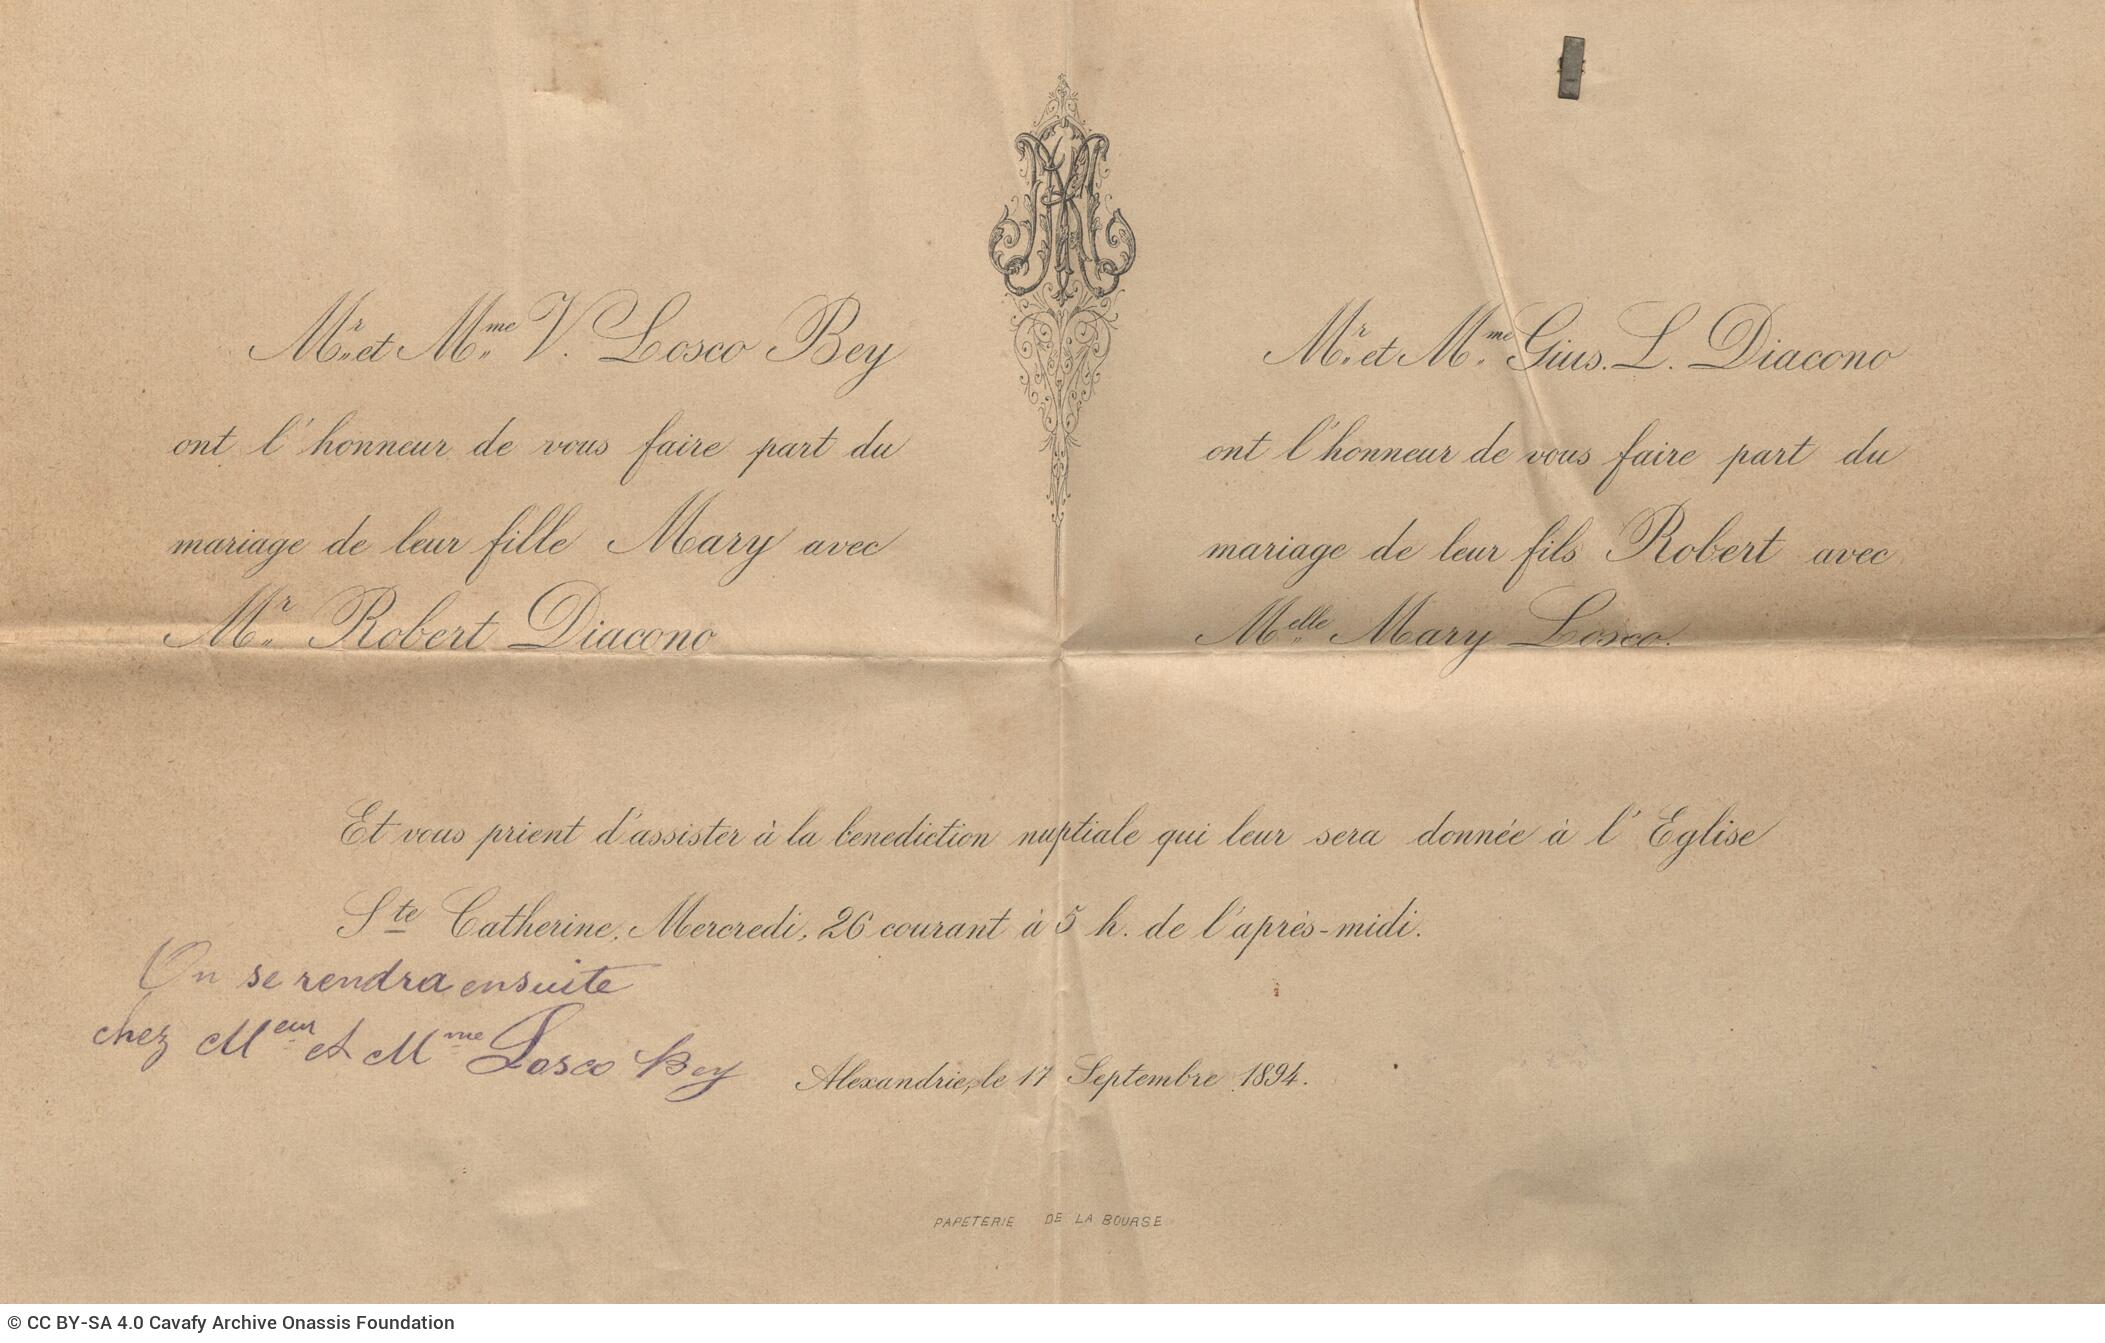 Mr. et Mme V. Losco Bey
ont l'honneur de vous faire part du
mariage de leur fille Mary avec
Mr. Robert Diacono
Mr. et Mme Gius. L. Diacono
ont l'honneur de vous faire part du
mariage de leur fils Robert avec
Melle Mary Losco.
Et vous prient d'assister à la benediction nuptiale qui leur sera donnée à l'Eglise
Ste Catherine, Mercredi, 26 courant à 5 h. de l'après-midi.
On se rendra ensuite
chez Meur et Mme Losco Bey
Alexandrie, le 17 Septembre 1894.
PAPETERIE DE LA BOURSE
© CC BY-SA 4.0 Cavafy Archive Onassis Foundation